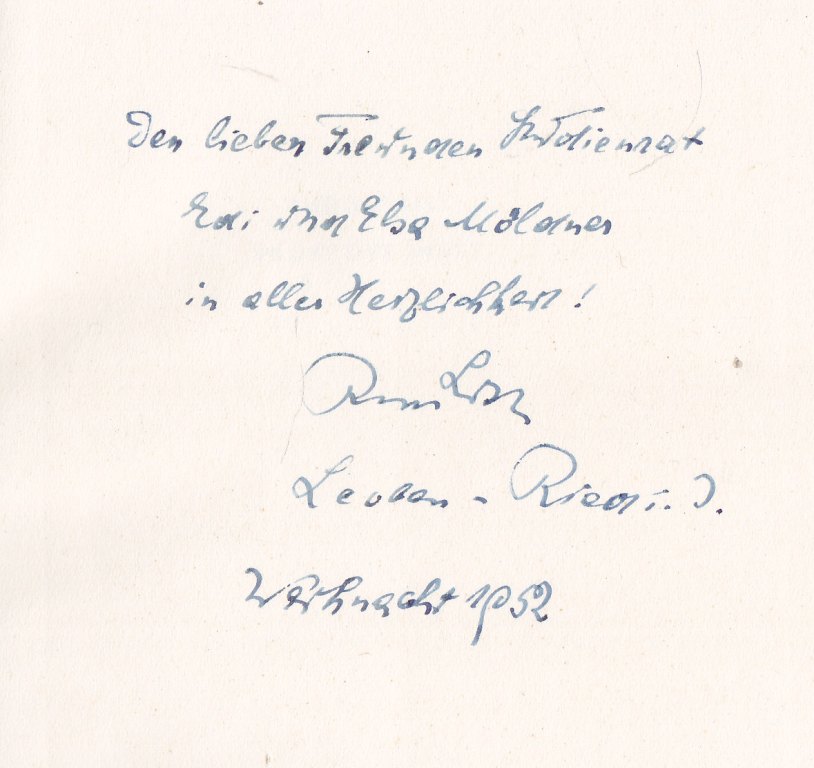 Den lieben Freunden Studienrat
Edi und Elsa Möldner
in aller Herzlichkeit!
Leoben - Ried i. I.
Weihnacht 1952